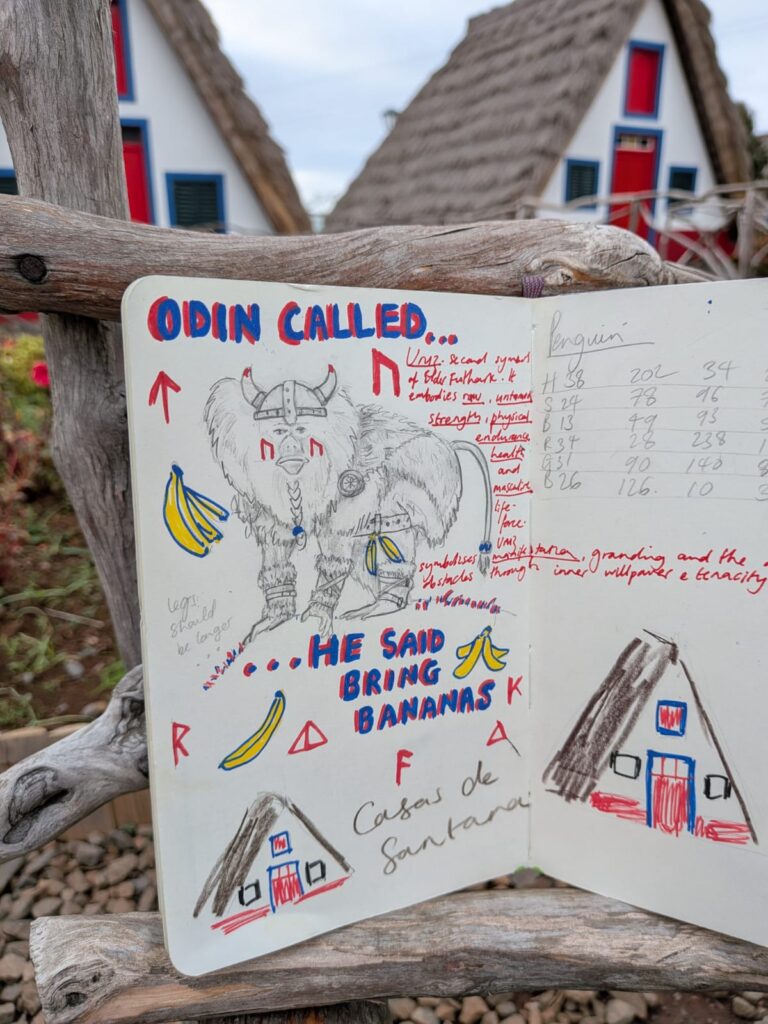 ODIN CALLED...
Uruz. second symbol
of Elder Futhark. It
embodies raw, untamed
strength, physical
endurance
health
and
masculine
life-
force.
Uruz
symbolizes manifestation, granding and the
obstacles through inner willpower & tenacity
legs
should
be longer
...HE SAID
BRING
BANANAS
K
R
F
Casas de
Santana
Penguin
H 38 202 34
S 24 78 96
B 13 49 93
R 34 28 238
G 31 90 140
B 26 126. 10